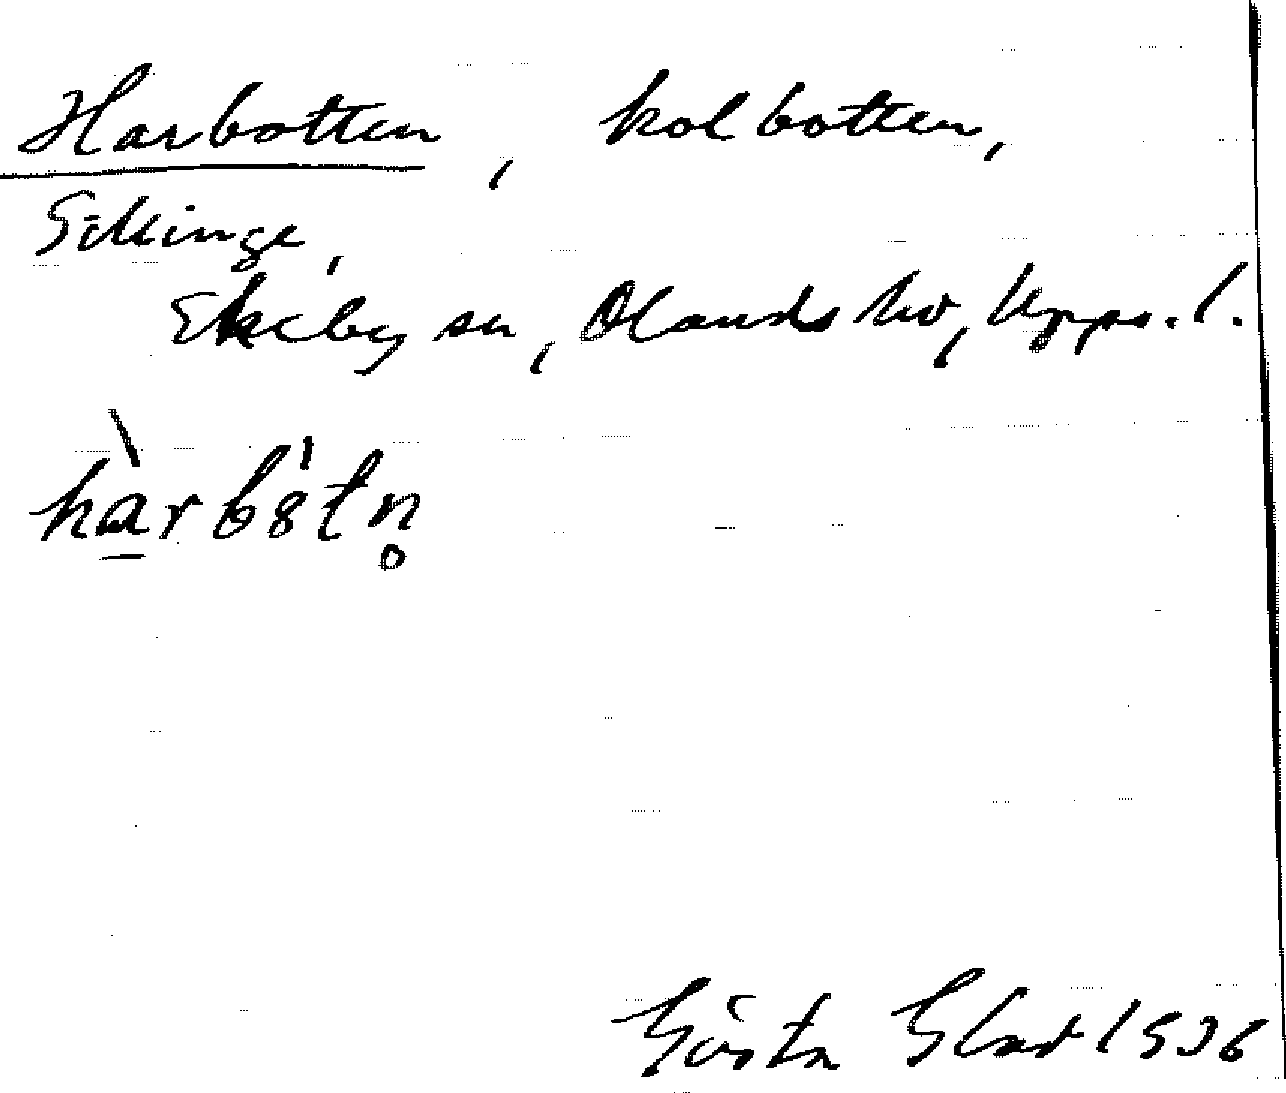 Harbotten, kolbotten,
Gillinge,
Ekeby sn, Olands hd, Upps. l.
hàrbo̍tn̥
Gösta Glad 1936